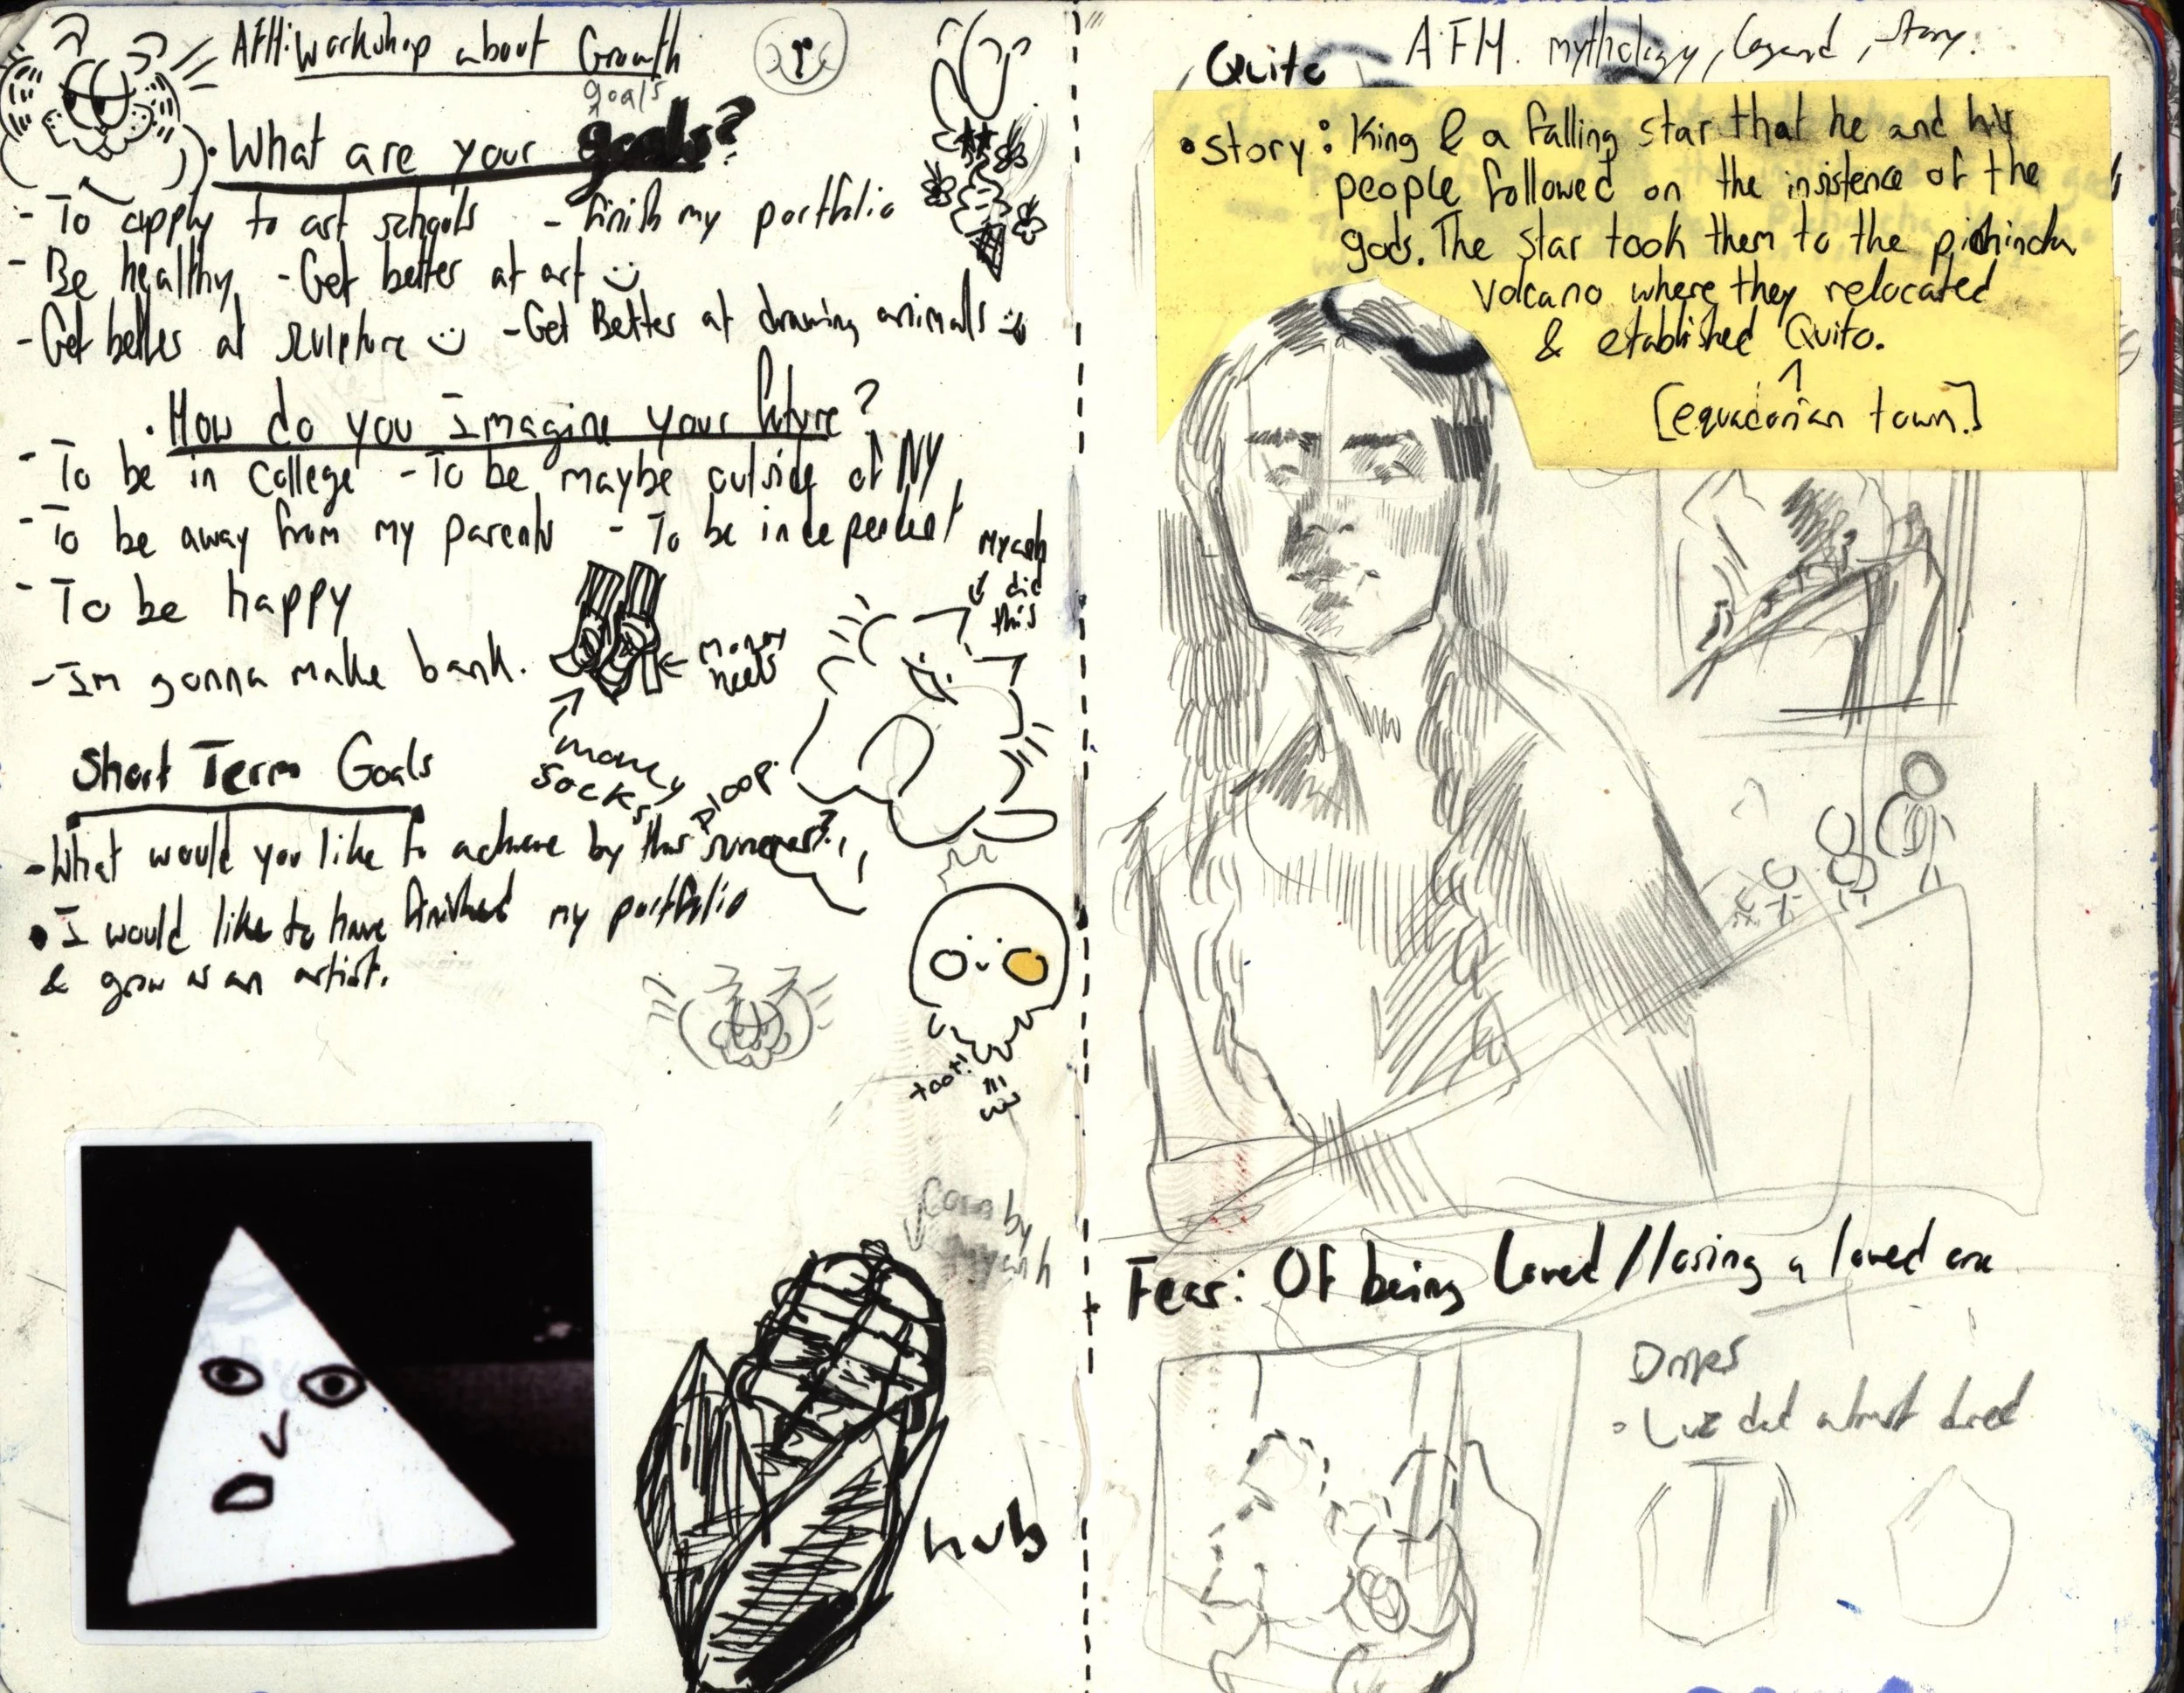 AFH: Workshop about Growth
goals
• What are your goals?
- To apply to art schools - finish my portfolio
- Be healthy - Get better at art :)
- Get better at sculpture :) - Get Better at drawing animals
• How do you Imagine your future?
- To be in College - To be maybe outside of NY
- To be away from my parents - To be independent
- To be happy
- Im gonna make bank.
money
money
socks
ploop
did
this
Short Term Goals
- What would you like to achieve by this summer?
• I would like to have finished my portfolio
& grow as an artist.
toot!
Corn by
hub
Quito
AFH. mythology, legend, story.
• story: King & a falling star that he and his
people followed on the insistence of the
gods. The star took them to the pichincha
Volcano where they relocated
& etablished Quito.
[equadorian town.]
Fear: Of being Loved // losing a loved one